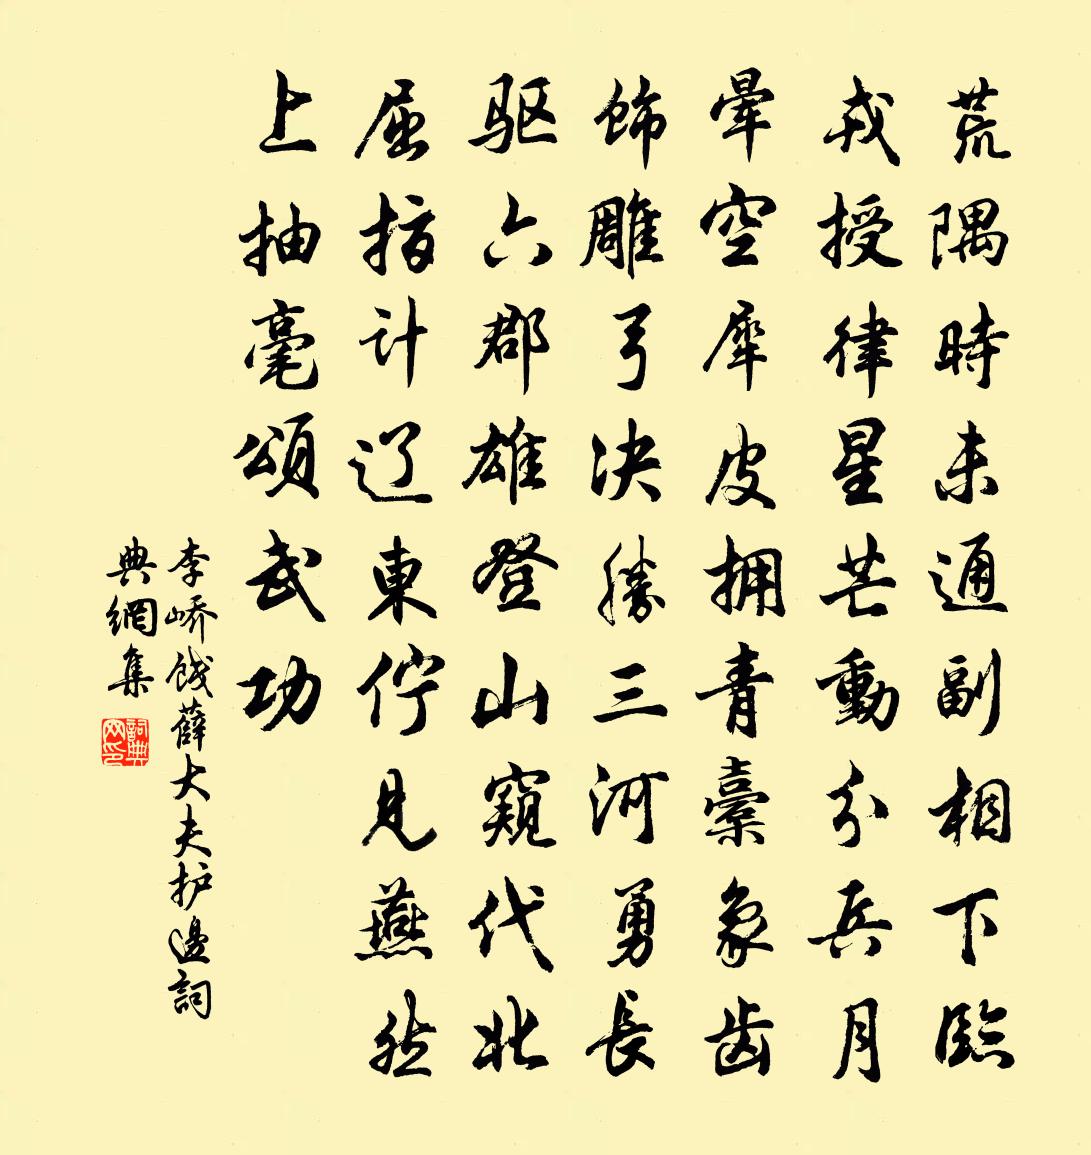 荒隅時未通副相下臨
戎授律星芒動分兵月
暈空犀皮拥青橐象齿
飾雕弓决勝三河勇長
驱六郡雄登山窺代北
屈指计辽東佇見燕然
上抽毫頌武功
李峤饯薛大夫护邊詞
典網集
詞典網印